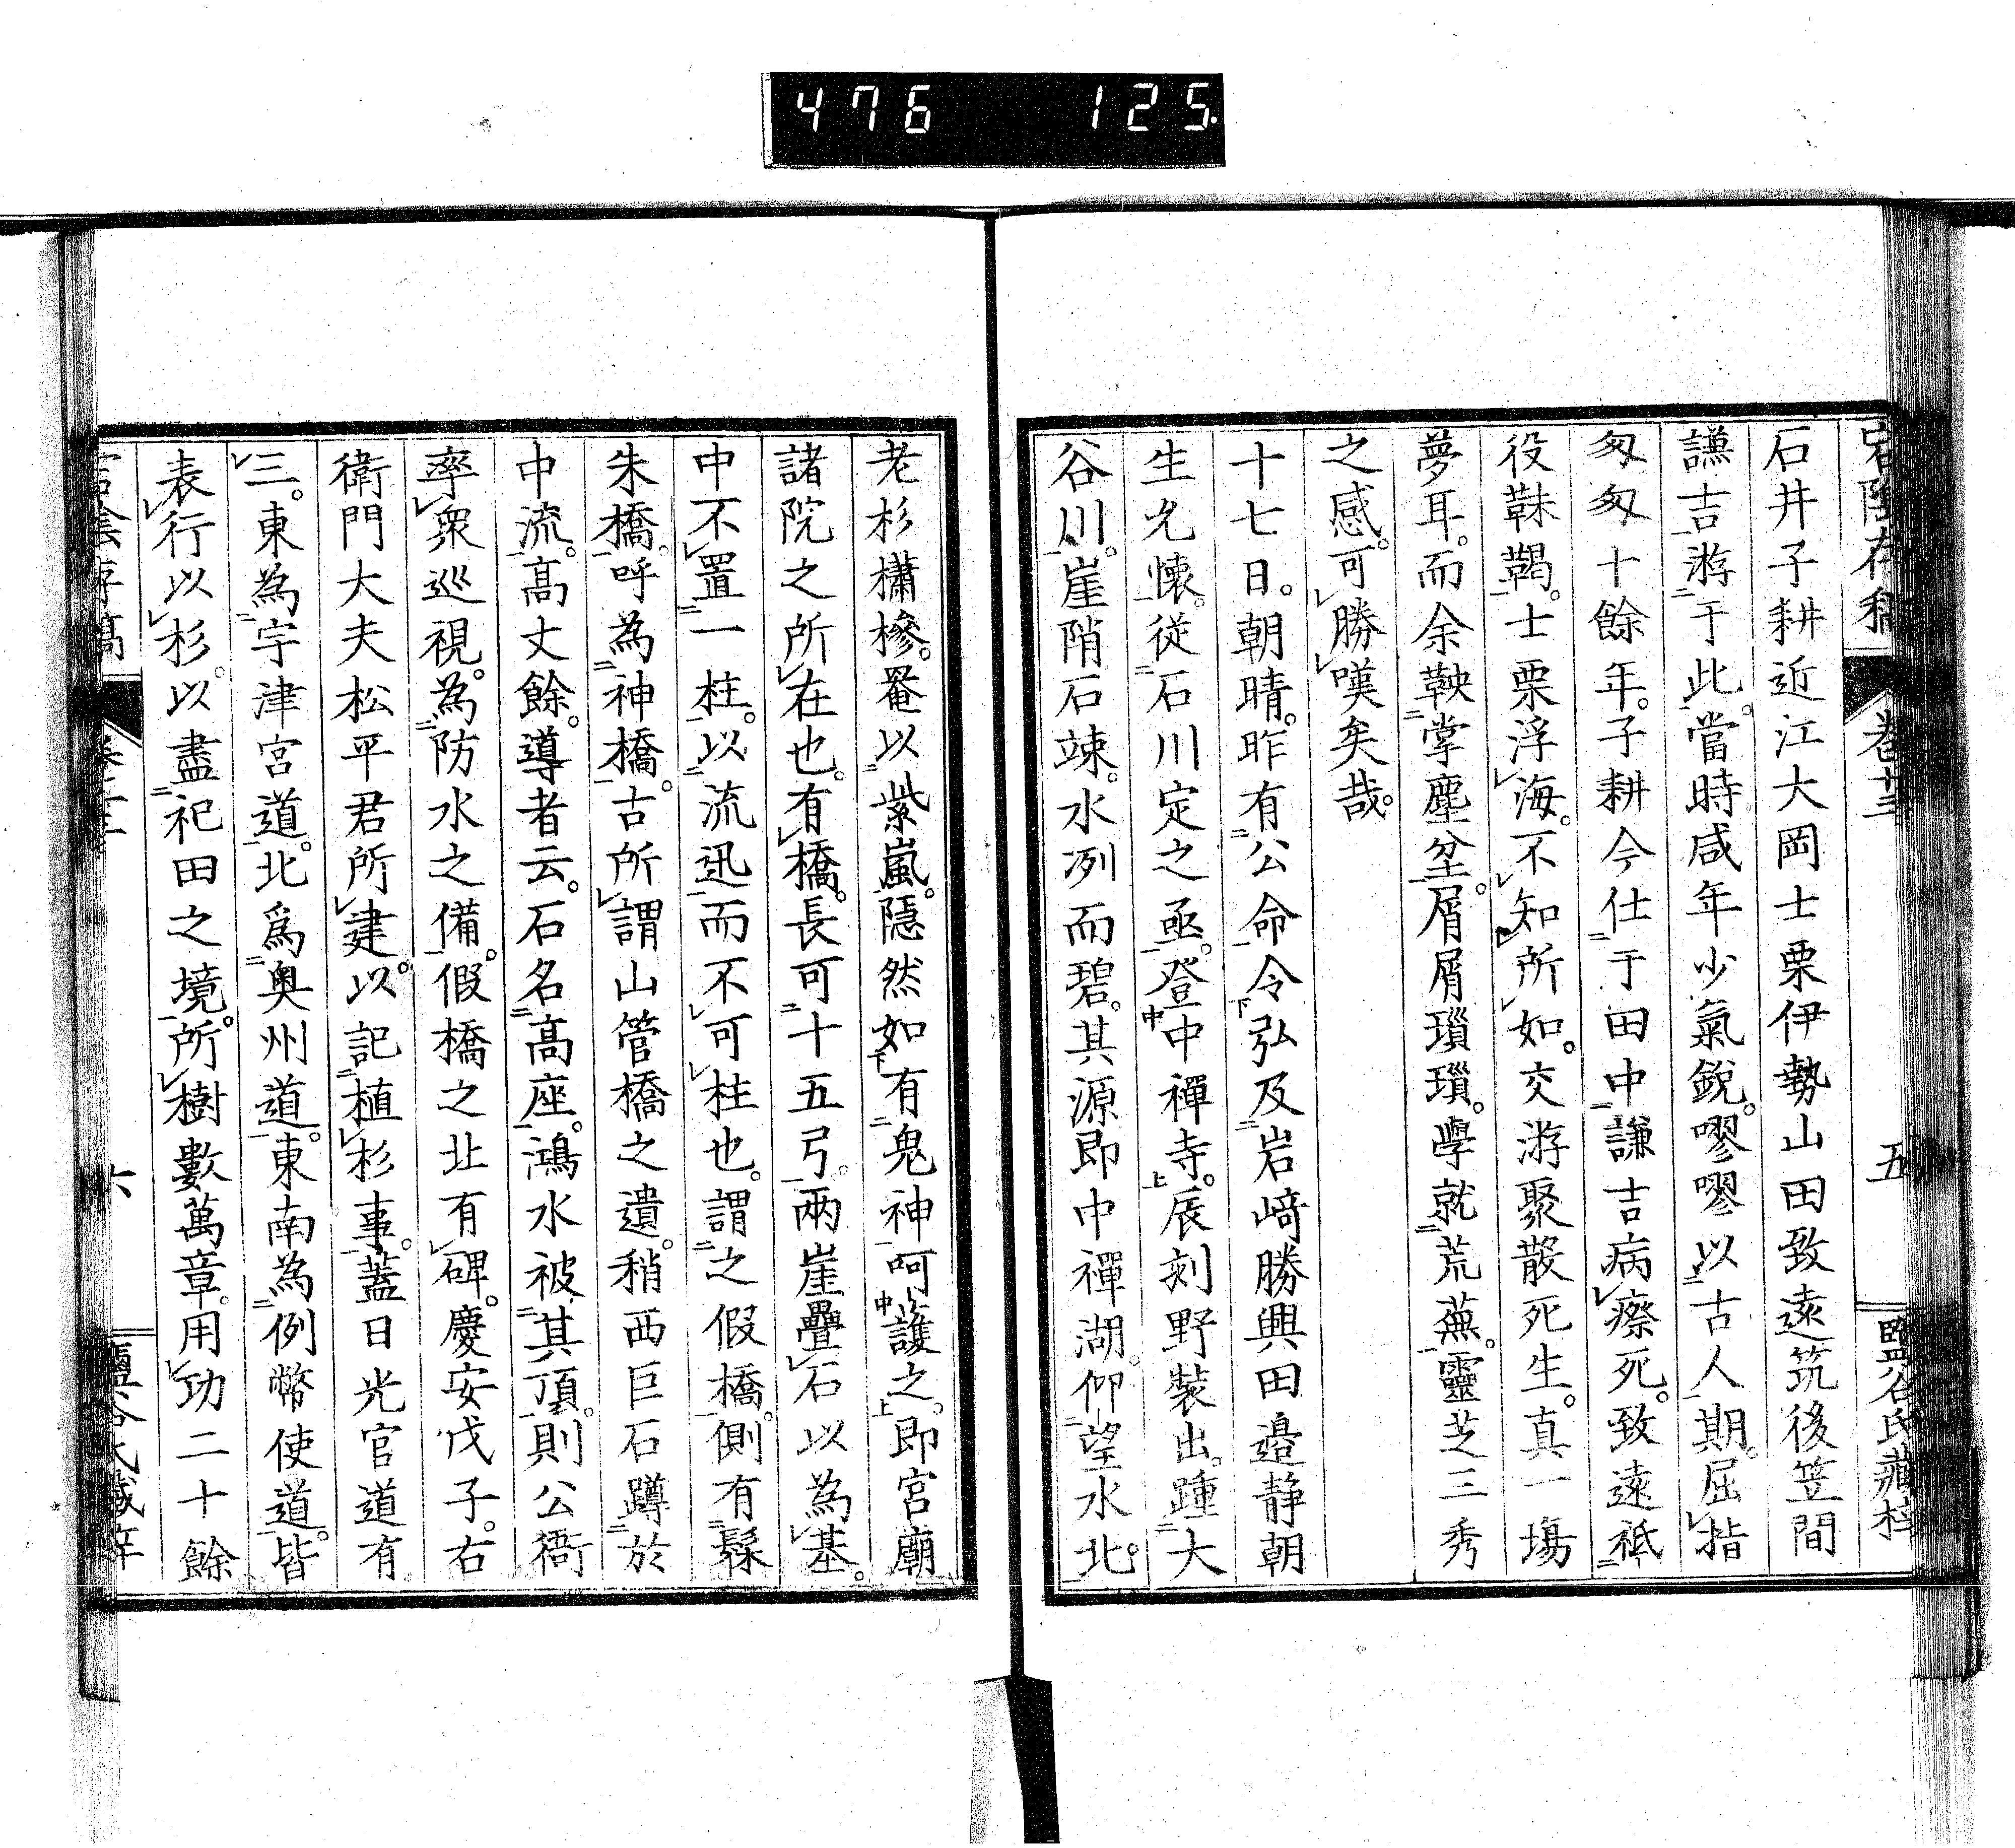 476 125.
宕陰存稿 卷十三 五 鹽谷氏藏梓
石井子耕近江大岡士栗伊勢山田致遠筑後笠間
謙吉游于此當時咸年少氣銳嘐嘐以古人期屈指
匆匆十餘年子耕今仕于田中謙吉病瘵死致遠祗
役韎鞨士栗浮海不知所如交游聚散死生真一場
夢耳而余鞅掌塵坌屑屑瑣瑣學就荒蕪靈芝三秀
之感可勝嘆矣哉
十七日朝晴昨有公命令弘及岩﨑勝興田邉静朝
生允懷從石川定之亟登中禪寺辰刻野裝出踵大
谷川崖陗石竦水冽而碧其源即中禪湖仰望水北
老杉橚槮罨以紫嵐隱然如有鬼神呵護之即宮廟
諸院之所在也有橋長可十五弓兩崖疊石以為基
中不置一柱以流迅而不可柱也謂之假橋側有髹
朱橋呼為神橋古所謂山管橋之遺稍西巨石蹲於
中流髙丈餘導者云石名髙座鴻水被其頂則公衙
率衆巡視為防水之備假橋之北有碑慶安戊子右
衛門大夫松平君所建以記植杉事蓋日光官道有
三東為宇津宮道北爲奥州道東南為例幣使道皆
表行以杉以盡祀田之境所樹數萬章用功二十餘
宕陰存稿 卷十三 六 鹽谷氏藏梓